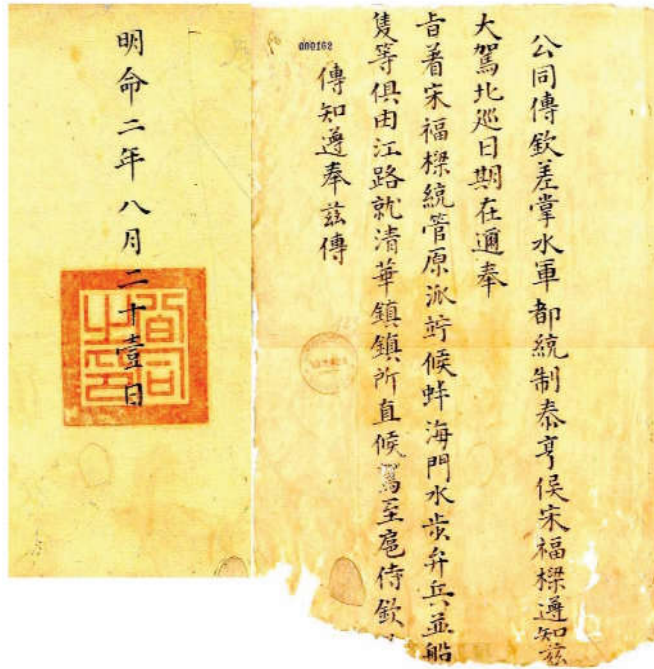 公同傳欽差掌水軍都統制泰亨侯宋福樑遵知茲
大駕北巡日期在邇奉
旨着宋福樑統管原派竚候蚌海門水步弁兵並船
隻等俱由江路就清華鎮鎮所直候駕至扈侍欽
傳知遵奉茲傳
000162
明命二年八月二十壹日
公同之印